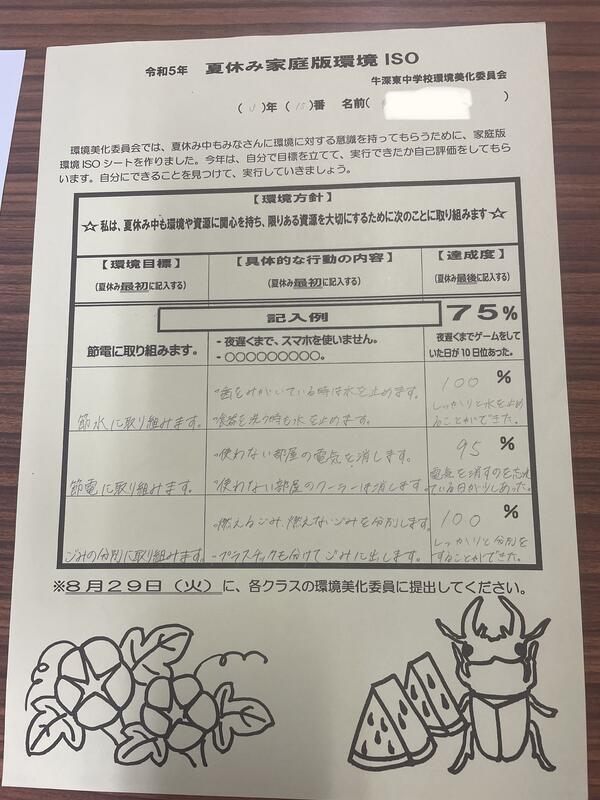 令和5年 夏休み家庭版環境ISO
牛深東中学校環境美化委員会
( 3 )年( 15 )番 名前( )
環境美化委員会では、夏休み中もみなさんに環境に対する意識を持ってもらうために、家庭版
環境ISOシートを作りました。今年は、自分で目標を立てて、実行できたか自己評価をしてもら
います。自分にできることを見つけて、実行していきましょう。
【環境方針】
☆私は、夏休み中も環境や資源に関心を持ち、限りある資源を大切にするために次のことに取り組みます☆
【環境目標】
(夏休み最初に記入する)
【具体的な行動の内容】
(夏休み最初に記入する)
【達成度】
(夏休み最後に記入する)
記入例
75%
節電に取り組みます。
・夜遅くまで、スマホを使いません。
・〇〇〇〇〇〇〇〇〇。
夜遅くまでゲームをして
いた日が10日位あった。
節水に取り組みます。
・歯をみがいている時は水を止めます。
・食器を洗う時も水を止めます。
100%
しっかりと水を止め
ることができた。
節電に取り組みます。
・使わない部屋の電気を消します。
・使わない部屋のクーラーは消します。
95%
電気を消すのを忘れ
ている日が少しあった。
ごみの分別に取り組みます。
・燃えるごみ、燃えないごみを分別します。
・プラスチックも分けてごみに出します。
100%
しっかりと分別を
することができた。
※8月29日(火)に、各クラスの環境美化委員に提出してください。